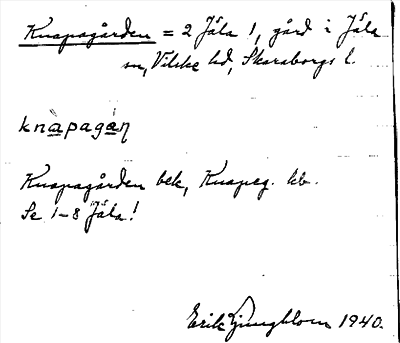 Knapagården = 2 Jäla 1, gård i Jäla
sn, Vilske hd, Skaraborgs l.
knapagan
Knapagården bek, Knapeg. kb.
Se 1-8 Jäla!
Erik Ljungblom 1940.